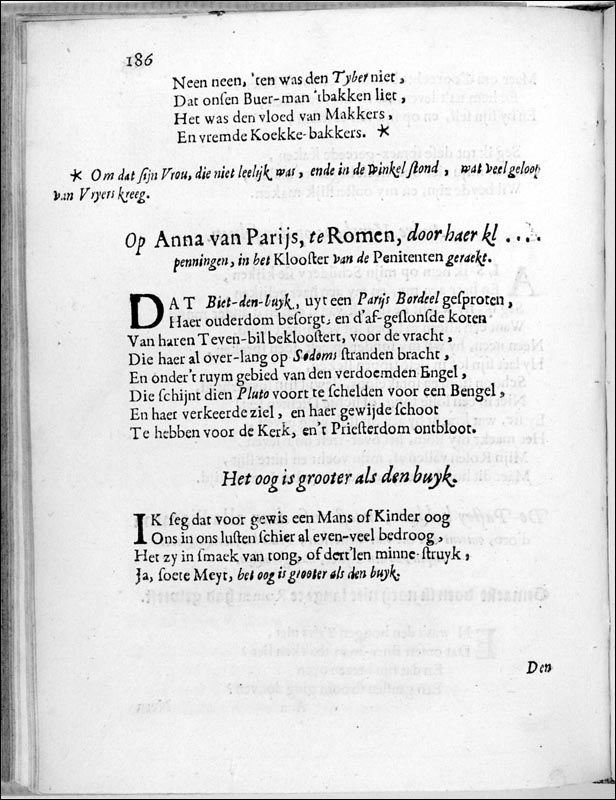 186
Neen neen, 'ten was den Tyber niet,
Dat onsen Buer-man 'tbakken liet,
Het was den vloed van Makkers,
En vremde Koekke-bakkers. *
* Om dat sijn Vrou, die niet leelijk was, ende in de Winkel stond, wat veel geloop
van Vryers kreeg.
Op Anna van Parijs, te Romen, door haer kl ....
penningen, in het Klooster van de Penitenten geraekt.
DAT Biet-den-buyk, uyt een Parijs Bordeel gesproten,
Haer ouderdom besorgt, en d'af-geslonsde koten
Van haren Teven-bil beklooster­t, voor de vracht,
Die haer al over-lang op Sodoms stranden bracht,
En onder't ruym gebied van den verdoemden Engel,
Die schijnt dien Pluto voort te schelden voor een Bengel,
En haer verkeerde ziel, en haer gewijde schoot
Te hebben voor de Kerk, en't Priesterdom ontbloot.
Het oog is grooter als den buyk.
IK seg dat voor gewis een Mans of Kinder oog
Ons in ons lusten schier al even-veel bedroog,
Het zy in smaek van tong, of dert'len minne-struyk,
Ja, soete Meyt, het oog is grooter als den buyk.
Den